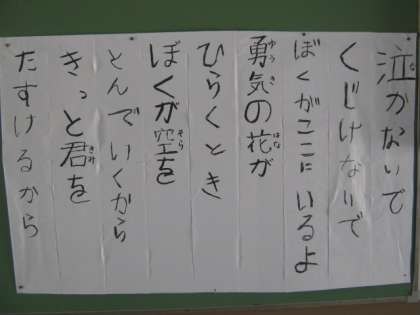 泣かないで
くじけないで
ぼくがここにいるよ
勇気の花が
ひらくとき
ぼくが空を
とんでいくから
きっと君を
たすけるから